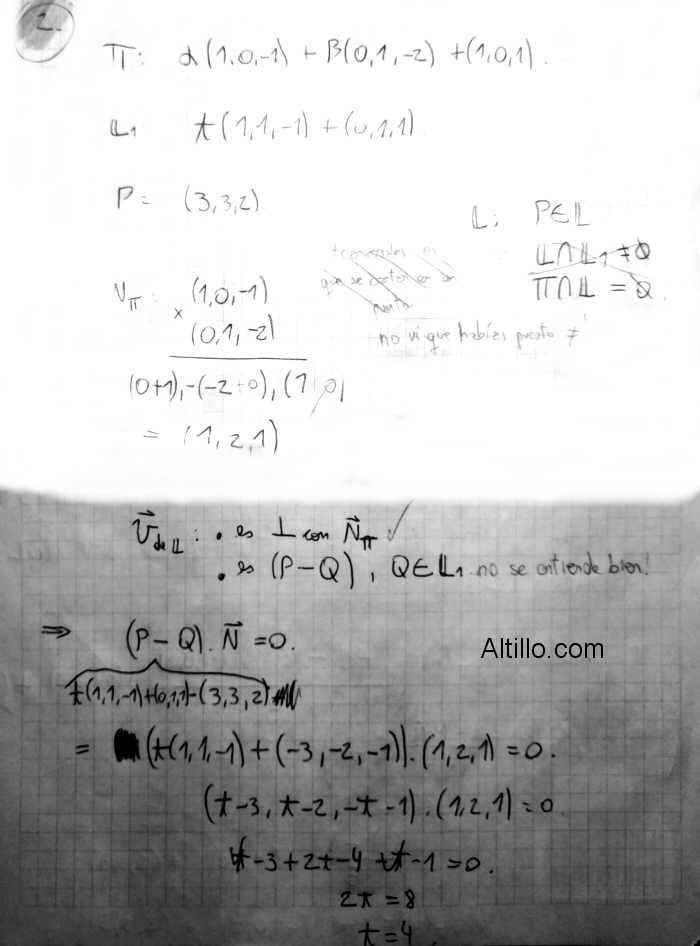 2.
Π: α(1,0,-1) + β(0,1,-2) + (1,0,1).
𝕃₁ t(1,1,-1) + (0,1,1)
P = (3,3,2)
𝕃: P∈𝕃
𝕃∩𝕃₁ ≠ Ø
Π∩𝕃 = Ø.
que se cortan en un
punto
no vi que habías puesto ≠
N_Π: (1,0,-1)
× (0,1,-2)
(0+1),-(-2+0),(1 0)
= (1,2,1)
V⃗ de 𝕃: • es ⊥ con N⃗_Π ✓
• es (P-Q), Q∈𝕃₁ no se entiende bien!
⇒ (P-Q).N⃗ =0.
t(1,1,-1)+(0,1,1)-(3,3,2)
= (t(1,1,-1)+(-3,-2,-1)).(1,2,1)=0.
(t-3, t-2, -t-1).(1,2,1)=0
t-3+2t-4-t-1=0.
2t=8
t=4
Altillo.com